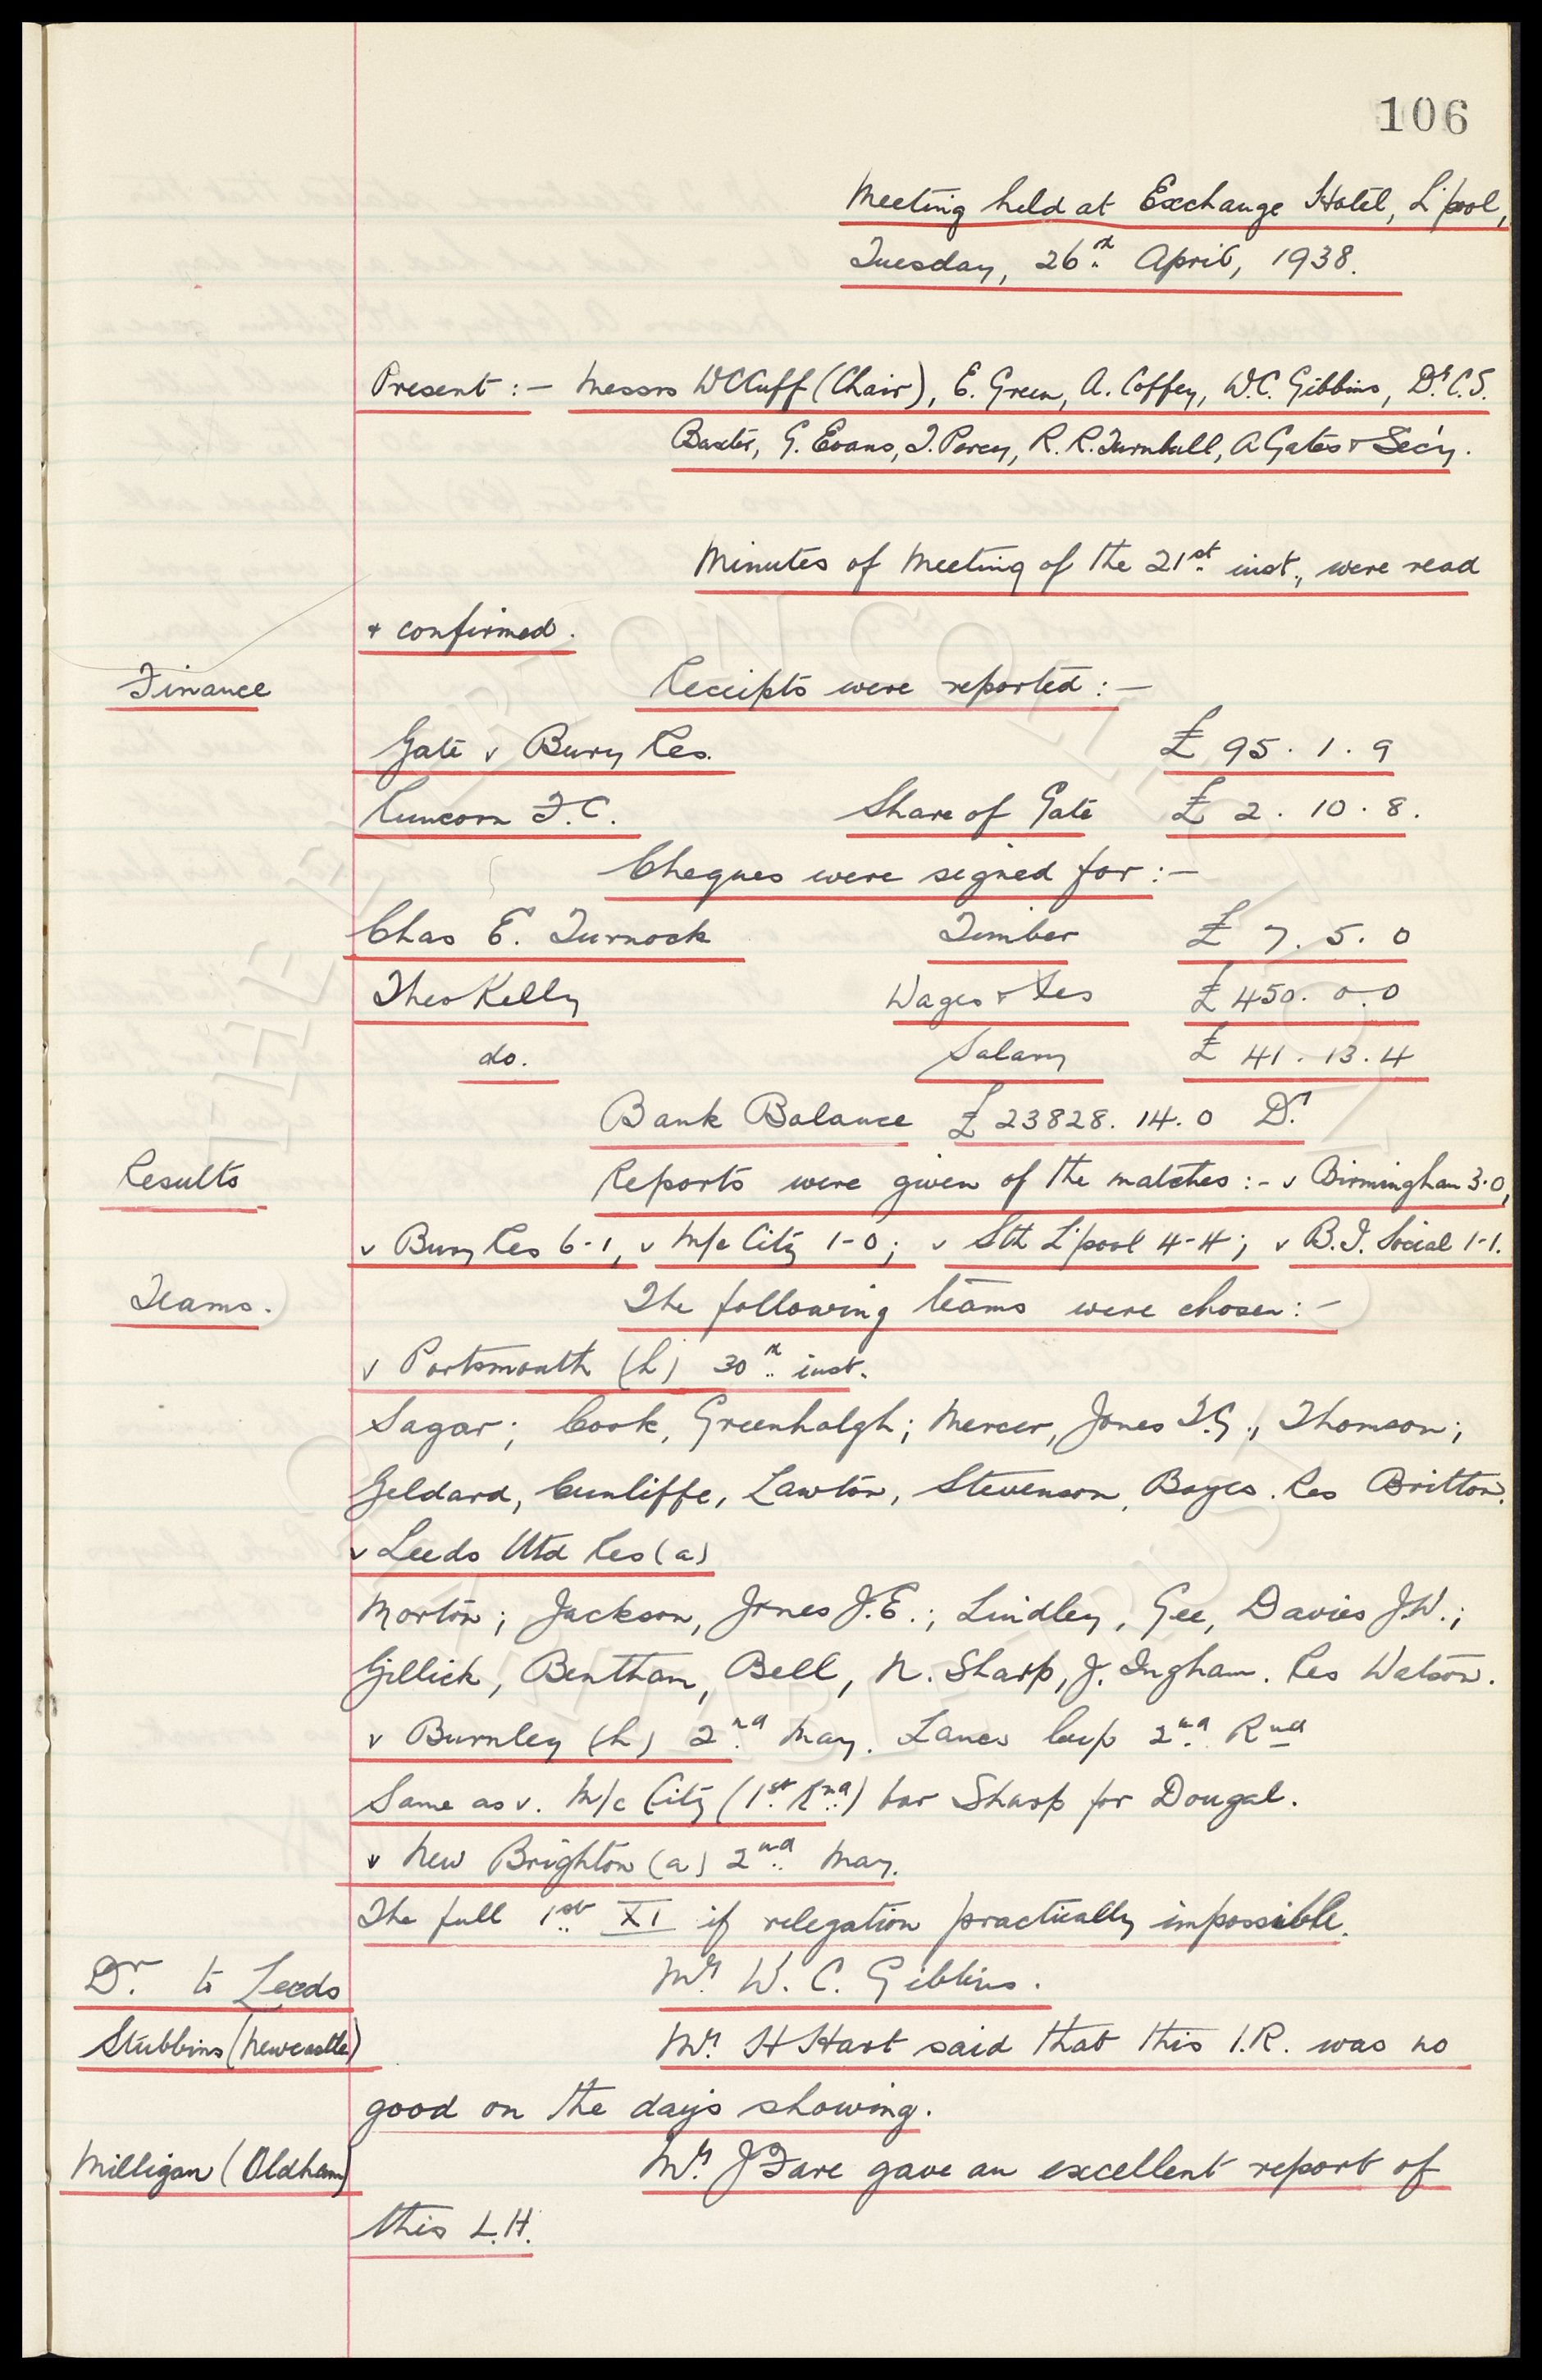 106
Meeting held at Exchange Hotel, L'pool,
Tuesday, 26th April, 1938.
Present :- Messrs W C Cuff (Chair), E. Green, A. Coffey, W.C. Gibbins, Dr. C.S.
Baxter, G. Evans, T. Percy, R. R. Turnbull, A Gates & Sec'y.
Minutes of Meeting of the 21st inst., were read
& confirmed.
Finance Receipts were reported :-
Gate v Bury Res. £ 95. 1. 9
Runcorn F.C. Share of Gate £ 2. 10. 8.
Cheques were signed for :-
Chas E. Turnock Timber £ 7. 5. 0
Theo Kelly Wages & Fes £ 450. 0. 0
do. Salary £ 41. 13. 4
Bank Balance £ 23828. 14. 0 Dr.
Results Reports were given of the matches :- v Birmingham 3-0,
v Bury Res 6-1, v M/c City 1-0; v Sth L'pool 4-4; v B.I. Social 1-1.
Teams. The following teams were chosen :-
v Portsmouth (h) 30th inst.
Sagar; Cook, Greenhalgh; Mercer, Jones T.G., Thomson;
Geldard, Cunliffe, Lawton, Stevenson, Boyes. Res Britton.
v Leeds Utd Res (a)
Morton; Jackson, Jones J.E.; Lindley, Gee, Davies J.W.;
Gillick, Bentham, Bell, N. Sharp, J. Ingham. Res Watson.
v Burnley (h) 2nd May. Lancs Cup 2nd Rnd
Same as v. M/c City (1st Rnd) bar Sharp for Dougal.
v New Brighton (a) 2nd May.
The full 1st XI if relegation practically impossible.
Dr. to Leeds Mr. W. C. Gibbins.
Stubbins (Newcastle) Mr. H Hart said that this I.R. was no
good on the day's showing.
Milligan (Oldham) Mr. J Fare gave an excellent report of
this L.H.